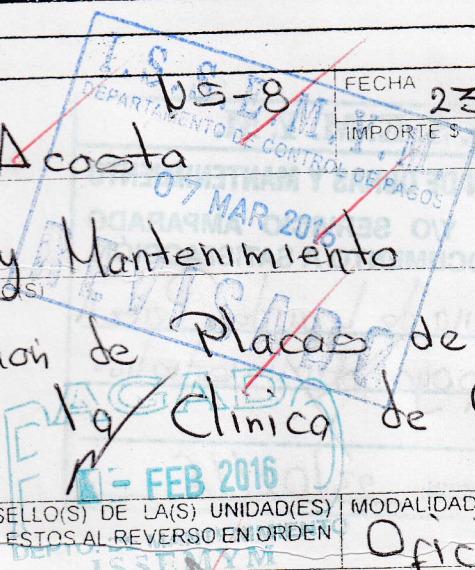 I.S.S.E.M.Y.M.
DEPARTAMENTO DE CONTROL DE PAGOS
07 MAR 2016
REVISADO
NS-8
FECHA 23
IMPORTE $
Acosta
y Mantenimiento
O(S)
ion de Placas de
la Clínica de
PAGADO
FEB 2016
SELLO(S) DE LA(S) UNIDAD(ES)
ESTOS AL REVERSO EN ORDEN
MODALIDAD
Ofic
DEPTO. DE
ISSEMYM